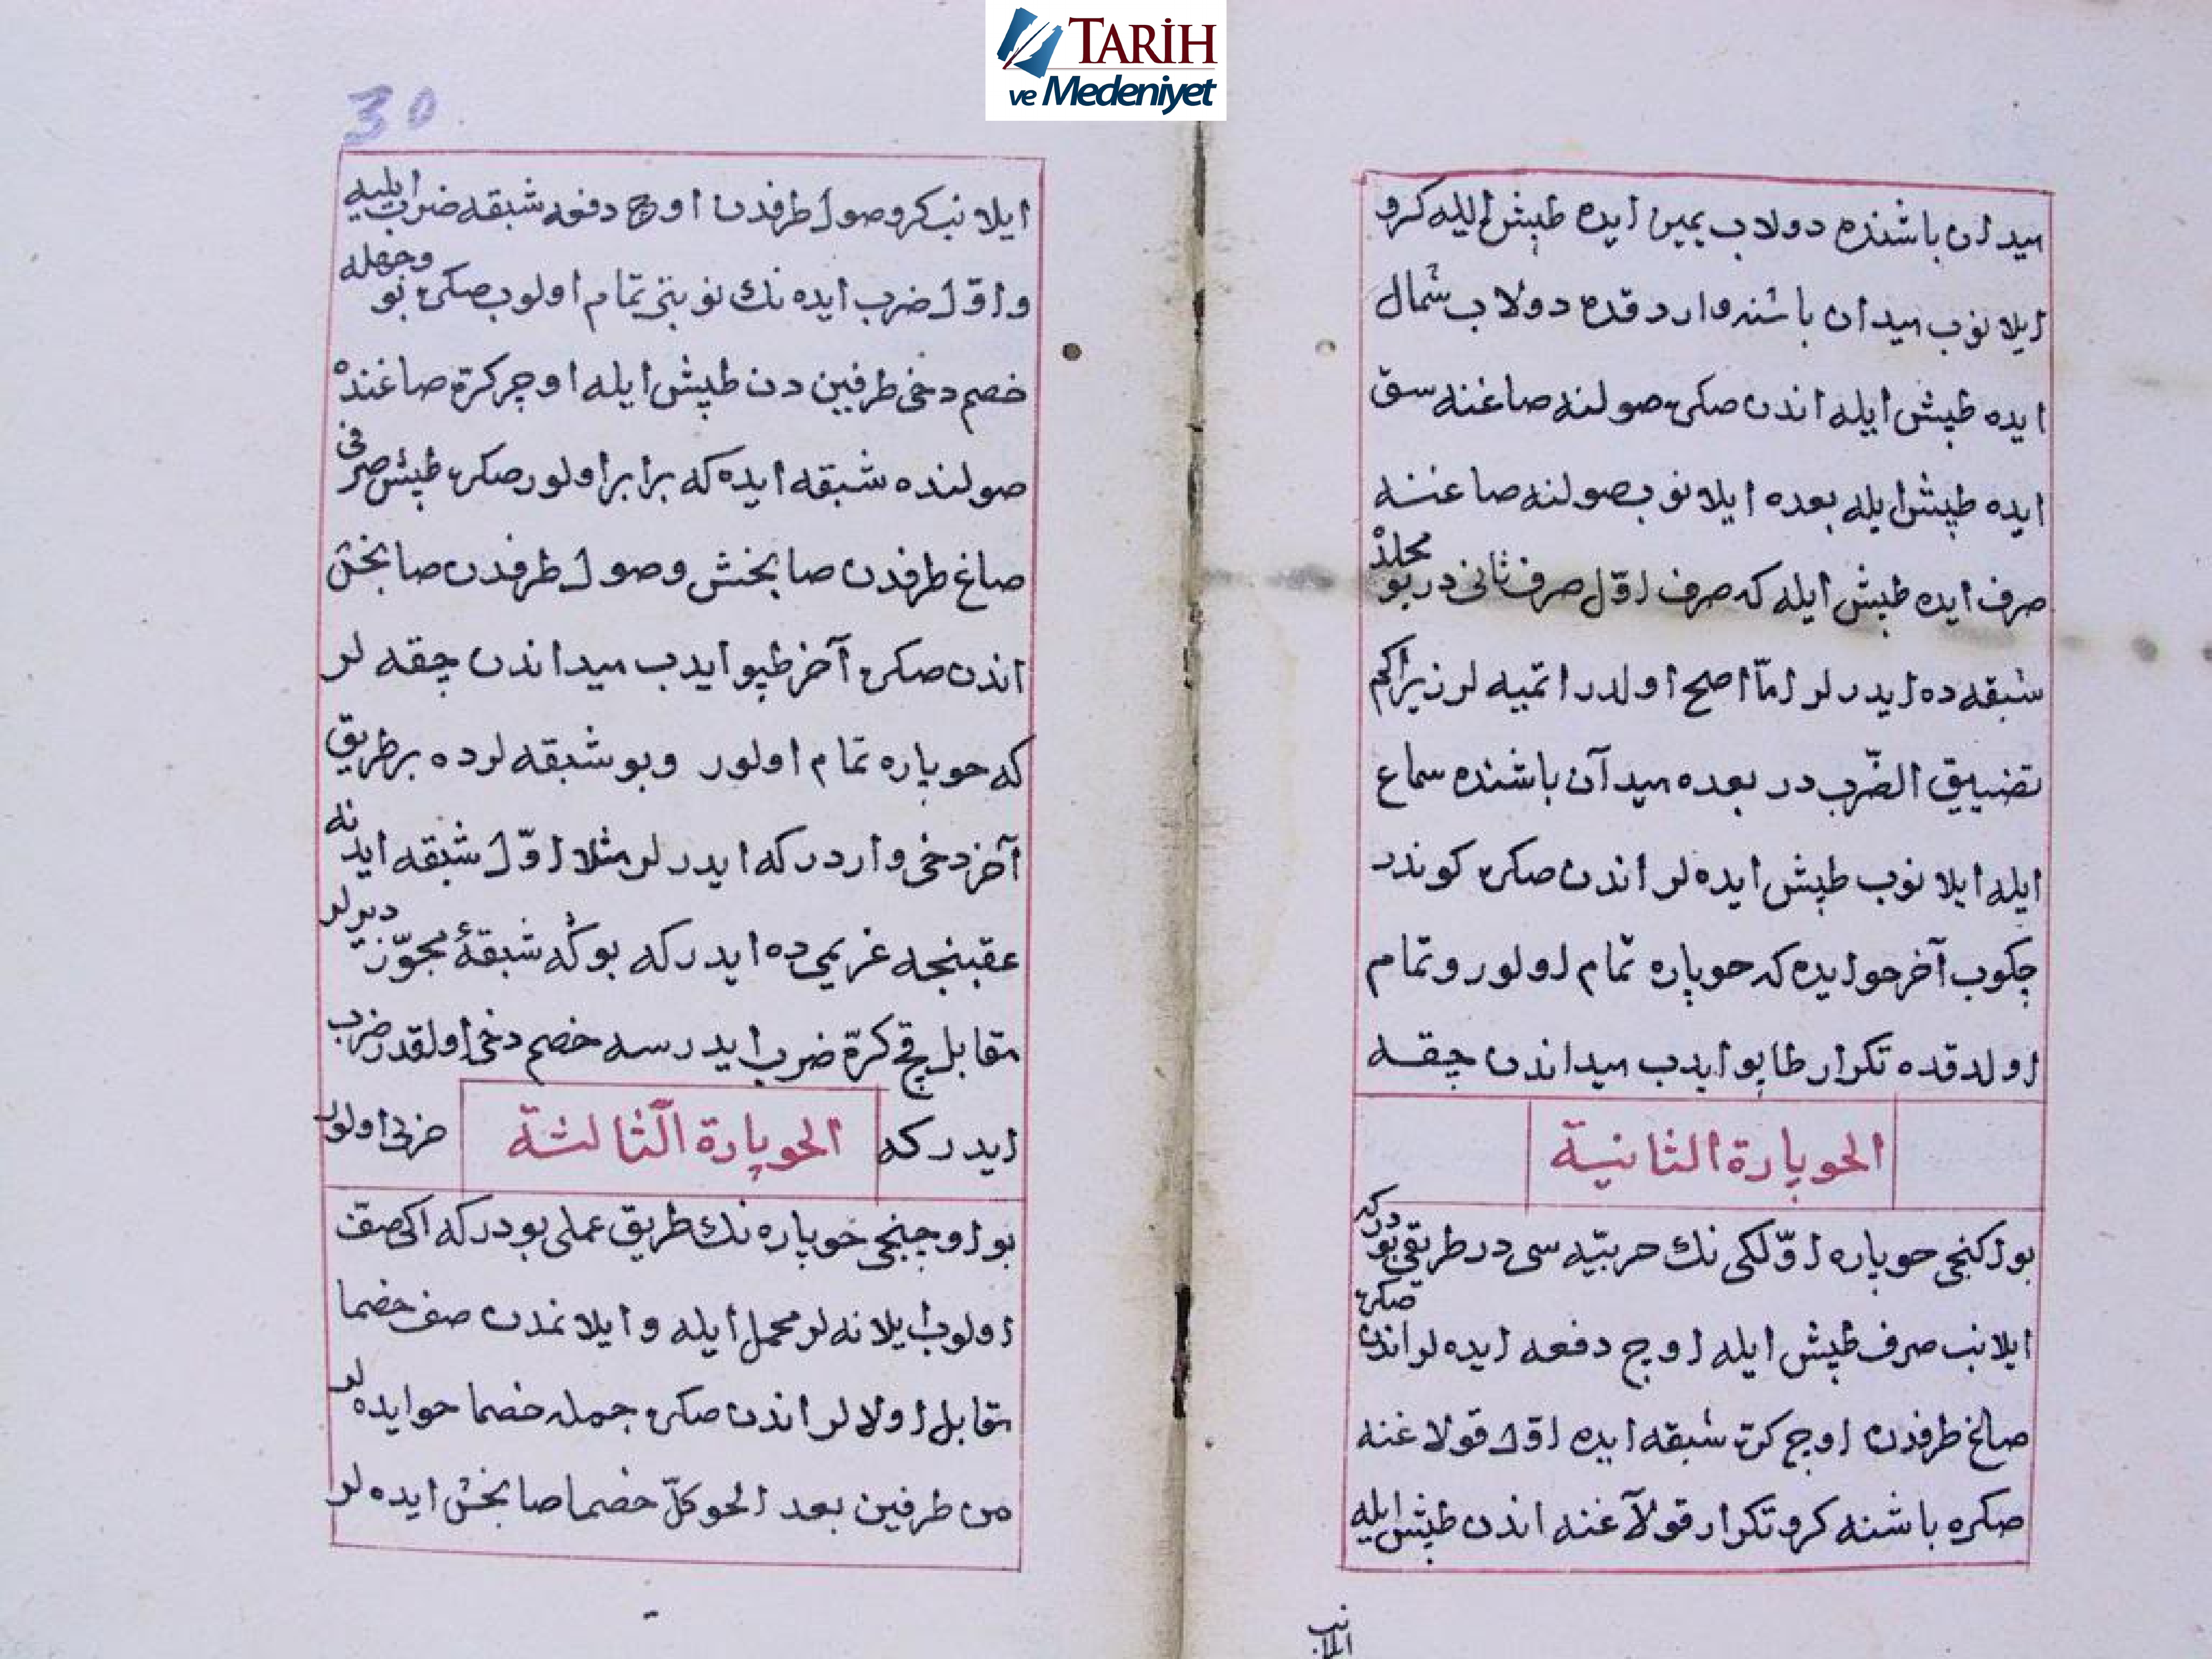 TARİH
ve Medeniyet
ميدان باشنده دولاب يمين ايده طپش ايله كرو
ايلانوب ميدان باشنه واردقده دولاب شمال
ايده طپش ايله اندن صكره صولنه صاغنه سق
ايده طپش ايله بعده ايلانوب صولنه صاغنه
صرف ايده طپش ايله كه صرف اوّل صرف ثانى در بو محلدْ
شبقه ده ايدرلر امّا اصلح اولدر اتميه لر زيراكم
تضييق الضّرب در بعده ميدآن باشنده سماع
ايله ايلانوب طپش ايده لر اندن صكره كوندر
چكوب آخر حو ايده كه حوپاره تمام اولور وتمام
اولدقده تكرار طاپو ايدب ميداندن چقه
الحوپارة الثانية
بو اكنجى حوپاره اوّلكى نك حربيّه سى در طريقى بودركه
ايلانب صرف طپش ايله اوچ دفعه ايده لر اندن صكره
صاغ طرفدن اوچ كرت شبقه ايده اوّل قولاغنه
صكره باشنه كرو تكرار قولآغنه اندن طپش ايله
ايلانب
30
ايلانب كرو صول طرفدن اوچ دفعه شبقه ضرب ايليه
واوّل ضرب ايده نك نوبتى تمام اولوب صكره بو وجهله
خصم دخى طرفين دن طپش ايله اوچر كرّة صاغندْه
صولنده شبقه ايده كه برابر اولور صكره طپش صرفى
صاغ طرفدن صابخش وصول طرفدن صابخش
اندن صكره آخر طپو ايدب ميداندن چقه لر
كه حوپاره تمام اولور وبو شبقه لرده بر طريق
آخر دخى واردر كه ايدرلر مثلا اوّل شبقه ايدنه
عقبنجه غريمى ده ايدركه بوكه شبقهٔ مجوّز ديرلر
مقابل قچ كرّة ضرب ايدرسه خصم دخى اولقدر ضرب
ايدركه الحوپارة الثالثة حربى اولور
بو اوچنجى حوپاره نك طريق عملى بودركه اكى صف
اولوب ايلانه لر محمل ايله وايلانمدن صف خصما
مقابل اولالر اندن صكره جمله خصما حو ايده لر
من طرفين بعد الحو كلّ خصما صابخش ايده لر